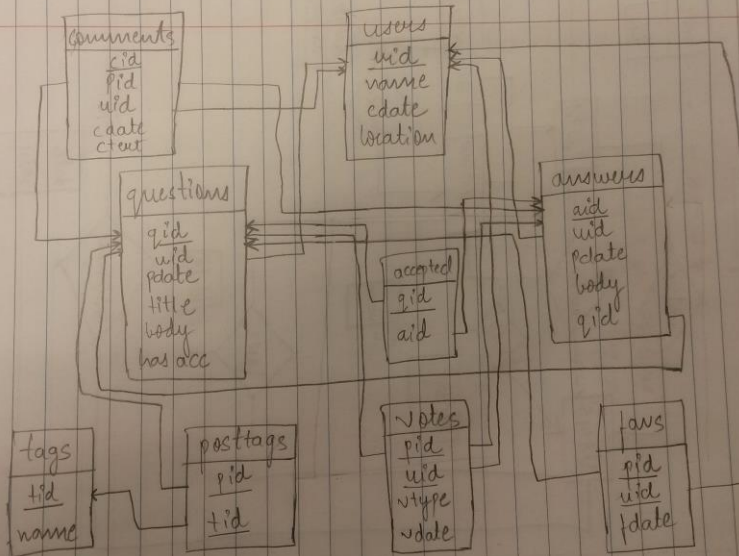 comments
cid
pid
uid
cdate
ctext
users
uid
name
cdate
location
questions
qid
uid
pdate
title
body
hasacc
accepted
qid
aid
answers
aid
uid
pdate
body
qid
tags
tid
name
posttags
pid
tid
votes
pid
uid
vtype
vdate
favs
pid
uid
fdate